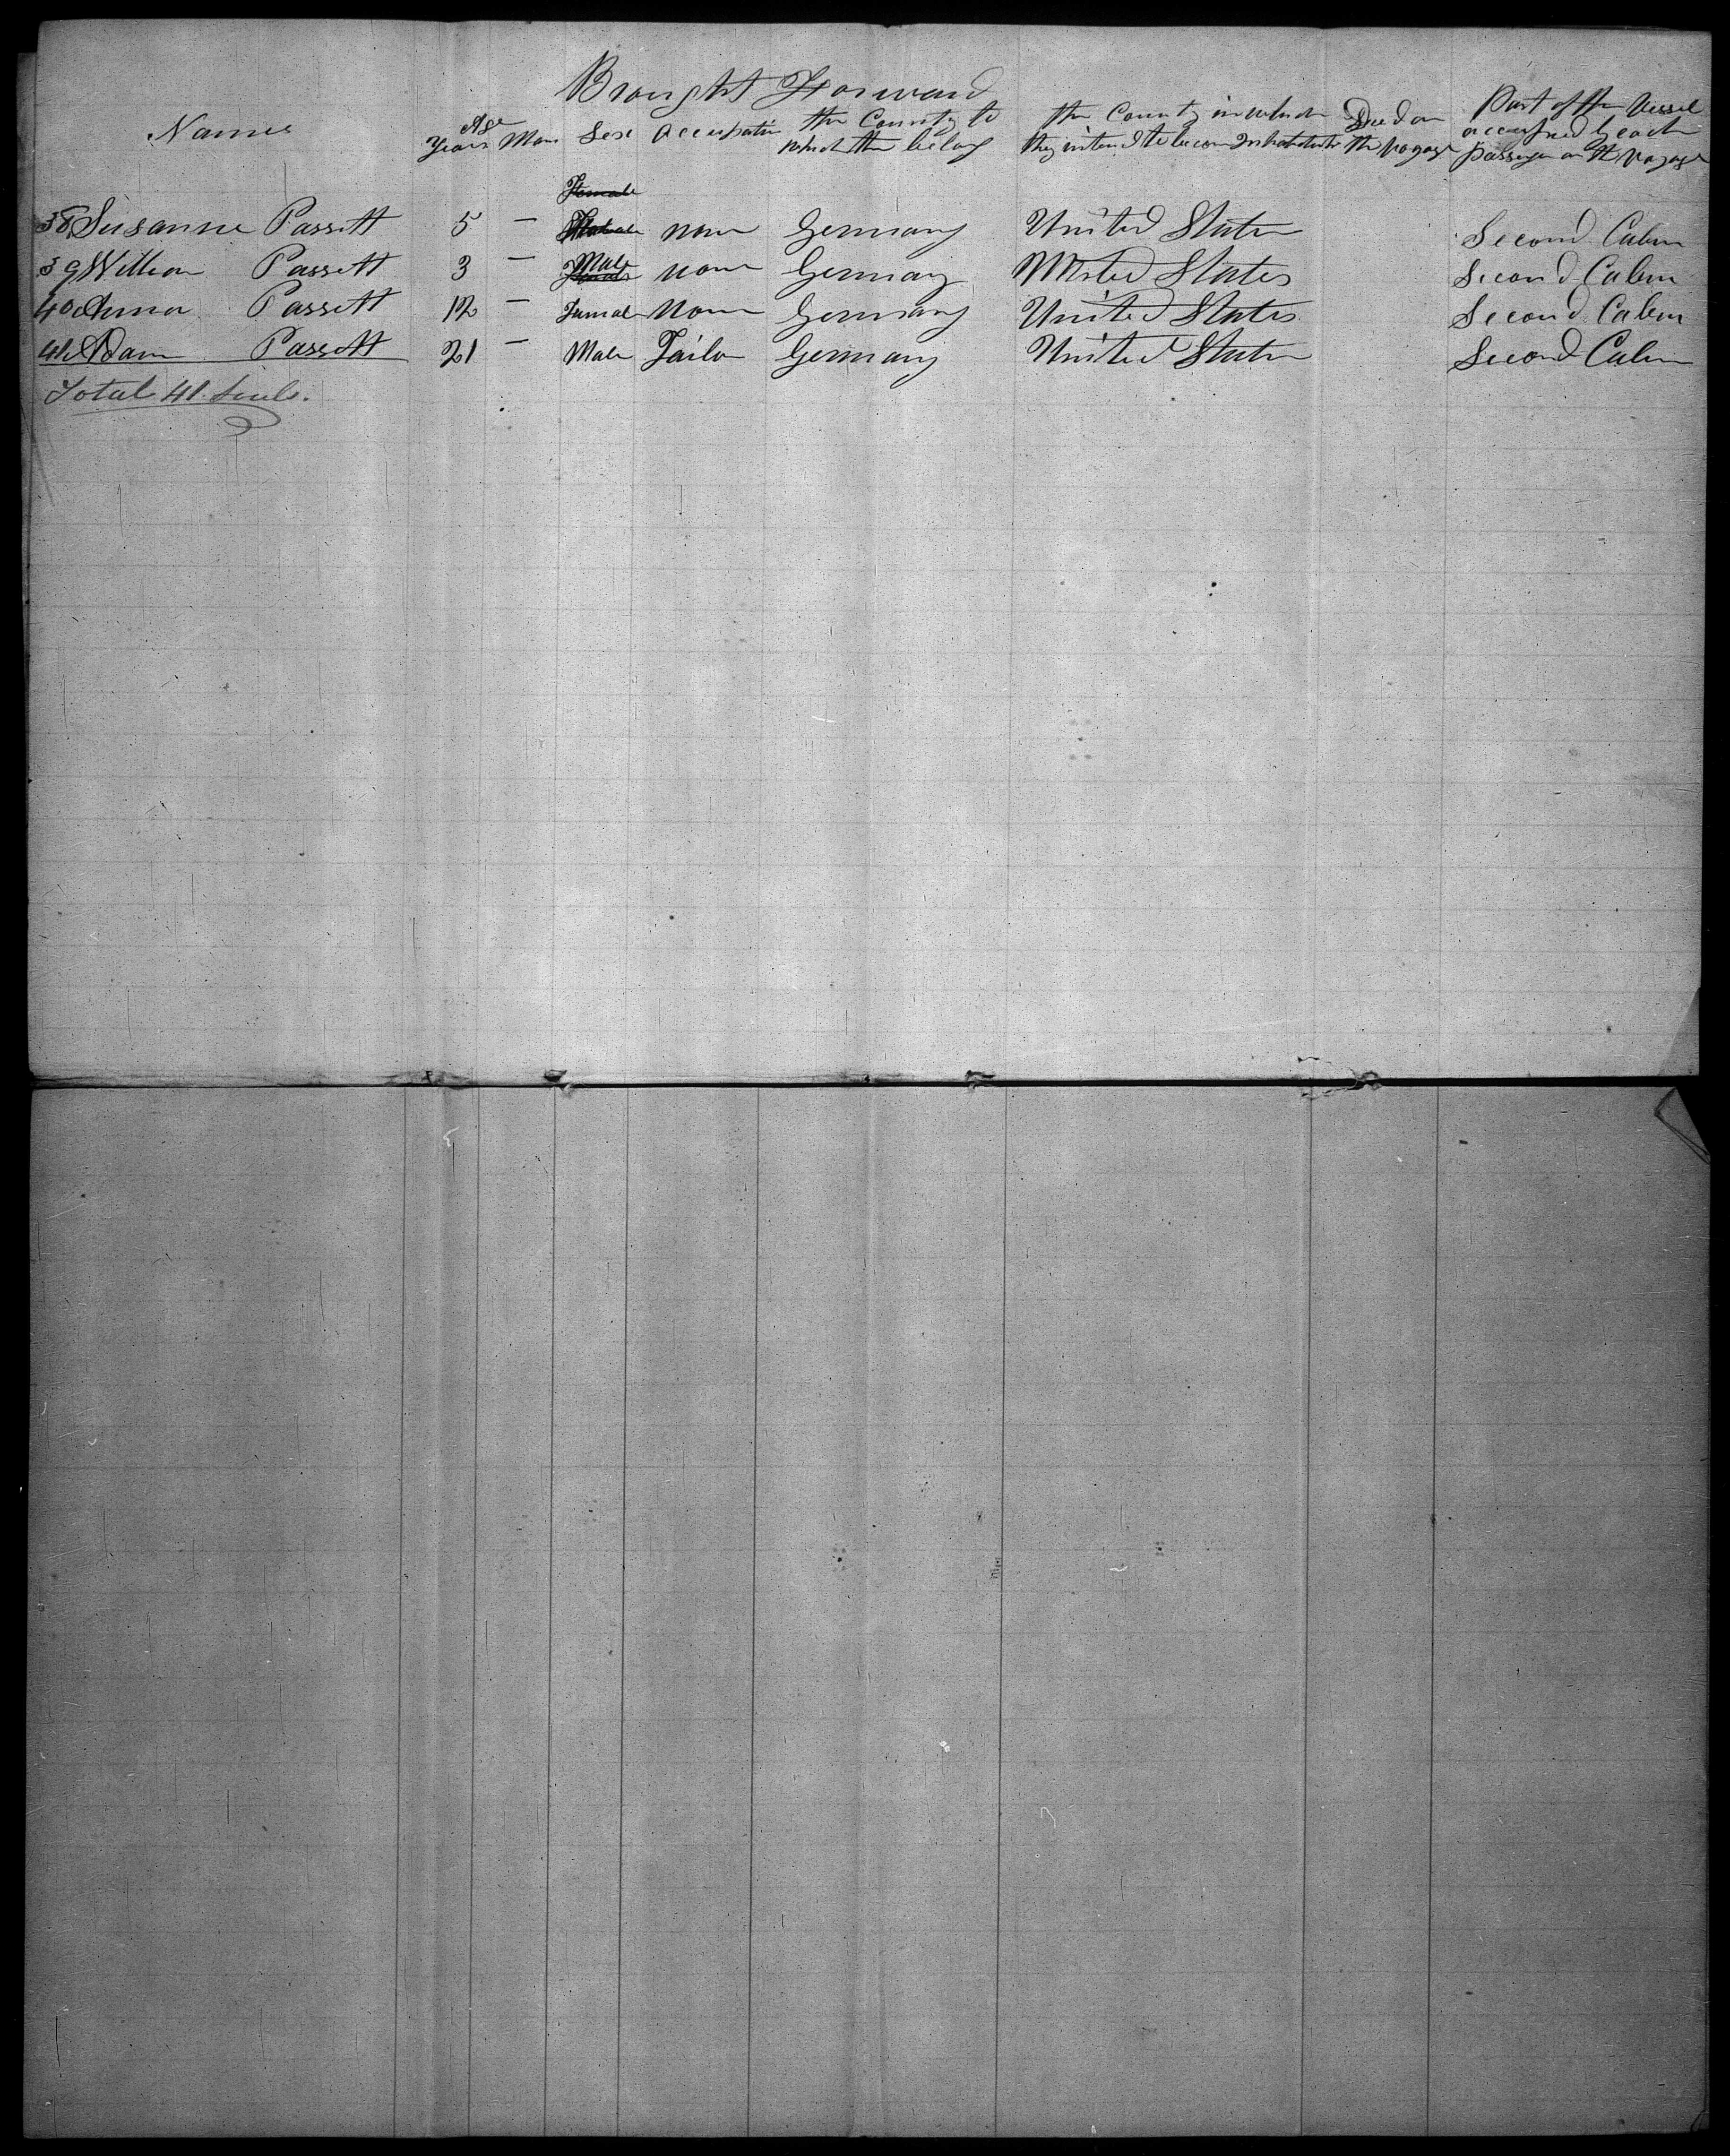 Brought Forward
Names Age Years Mon Sex Occupation the Country to which the belong the Country in which they intend to become Inhabitants Died on the voyage Part of the Vessel occupied by each passenger on the voyage
Female
38 Susanne Passett 5 – none Germany United States Second Cabin
Male
39 William Passett 3 – none Germany United States Second Cabin
40 Anna Passett 12 – Female None Germany United States Second Cabin
41 Adam Passett 21 – Male Tailor Germany United States Second Cabin
Total 41 Souls.